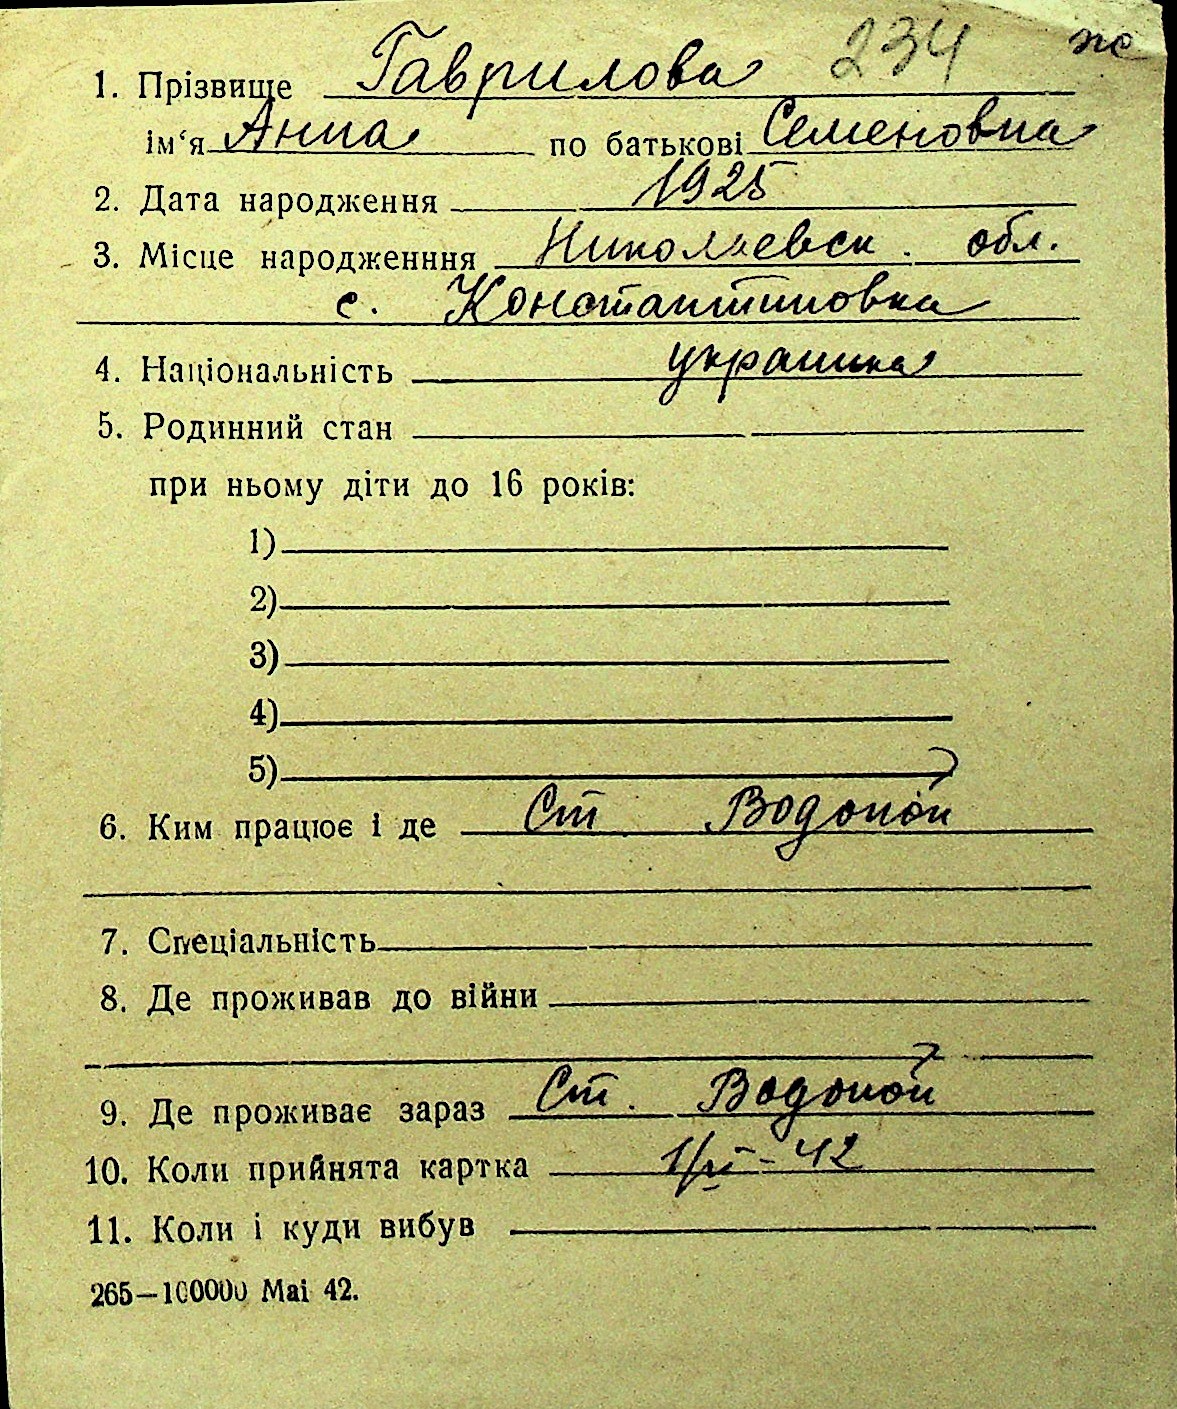 234 ж
1. Прізвище Гаврилова
ім‘я Анна по батькові Семеновна
2. Дата народження 1925
3. Місце народженння Николаевск. обл.
с. Константиновка
4. Національність украинка
5. Родинний стан
при ньому діти до 16 років:
1)
2)
3)
4)
5)
6. Ким працює і де Ст Водопой
7. Спеціальність
8. Де проживав до війни
9. Де проживає зараз Ст. Водопой
10. Коли прийнята картка
11. Коли і куди вибув
265—100000 Mai 42.